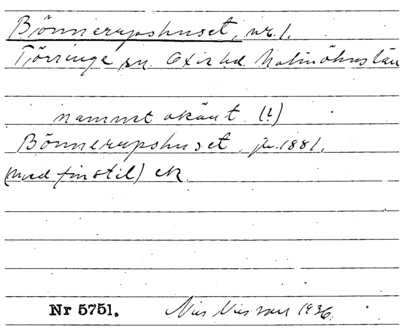 Bönnerupshuset, nr. 1.
Törringe sn. Oxie hd. Malmöhus län
namnet okänt. (!)
Bönnerupshuset jb. 1881.
(med fin stil) ek
Nr 5751. Nils Nilsson 1936.